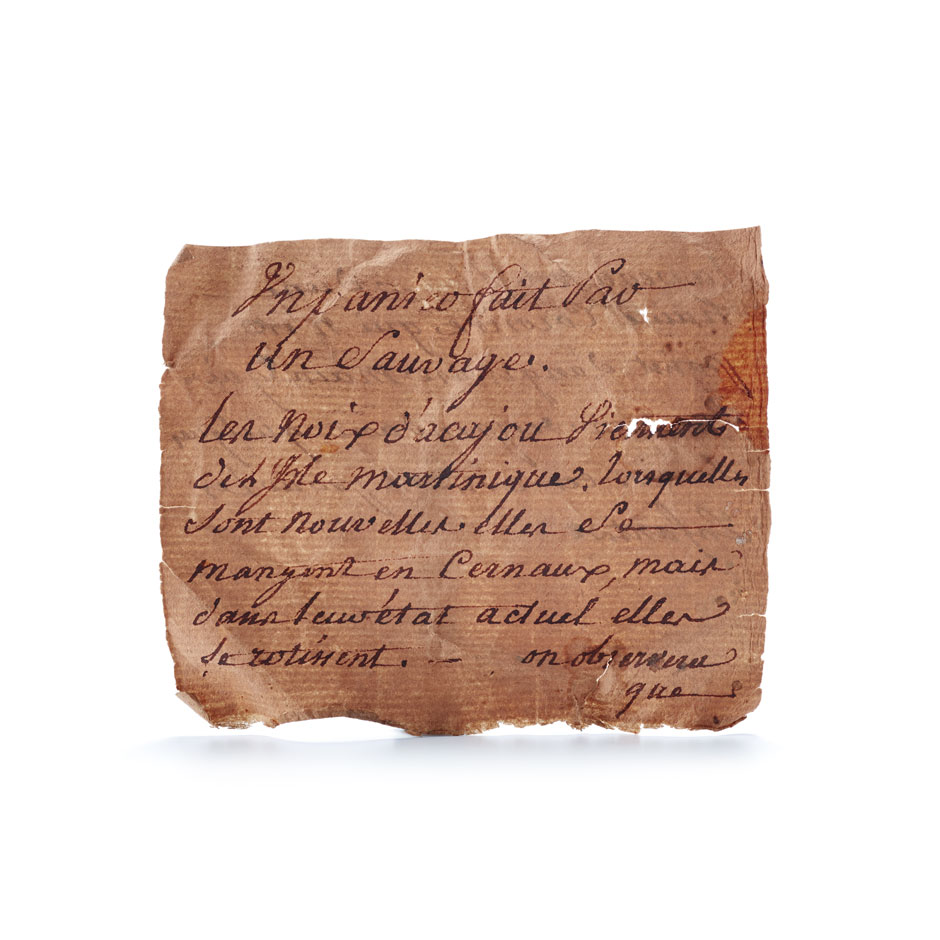 Un panier fait Par
un Sauvage.
les Noix d'acajou Viennent
des Isle martinique. lorsquelles
sont Nouvelles elles Se
mangent en Cernaux, mais
dans leur état actuel elles
se rotissent. — on observera
que